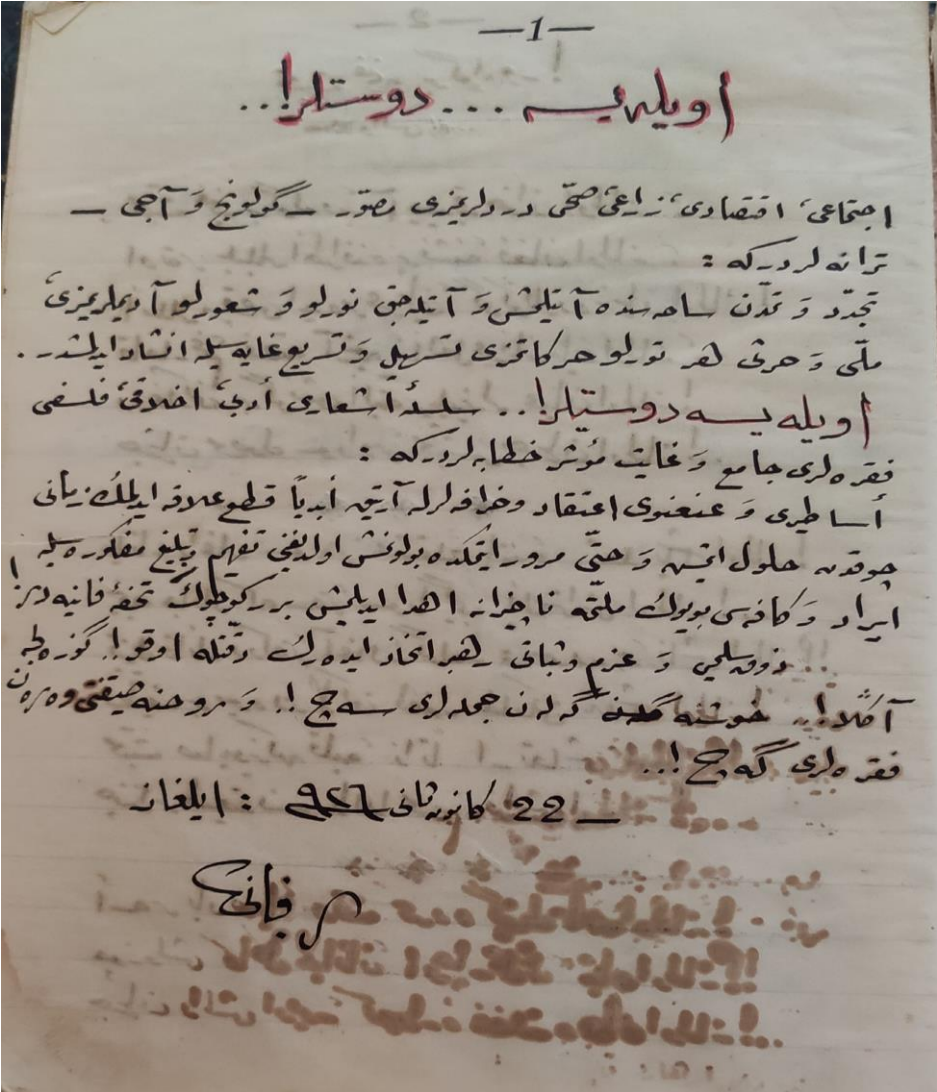 —1—
اویله یسه ... دوستلر!..
اجتماعی، اقتصادی، زراعی، صحّی دردلریمزی مصوّر — گولونج وَ آجی —
ترانه لردركه :
تجدّد وَ تمدّن ساحه سنده آتیلمش وَ آتیله جق نورلو وَ شعورلو آدیملریمزی،
ملّی وَ حرثی هر تورلو حركاتمزی تسهیل وَ تسریع غایه سیله انشاد ایدلمشدر.
اویله یسه دوستلر!.. سلسلهٔ اشعاری أدبی، اخلاقی، فلسفی
فقره لری جامع وَ غایت مؤثر خطابه لردركه :
أساطیری وَ عنعنوی اعتقاد وخرافه لرله آرتیق أبدیاً قطع علاقه ایدیلمك زمانی
چوقدن حلول ایتمش وَ حتّی مرور ایتمكده بولونمش اولدیغنی تفهیم وتبلیغ مفكوره سیله
ایراد وَ كافه سی بویوك ملّتمه ناچیزانه اهدا ایدیلمش برر كوچوك تحفهٔ فانیه در!
ذوق سلیمی وَ عزم وثباتی رهبر اتخاذ ایده رك دقّتله اوقو!. گوزه لجه
آڭلا!.. خوشنه گلن جمله لری سه چ!. وَ روحنه صیقنتی ویره ن
فقره لری گه چ!...
— 22 كانون ثانی ٩٢٦ : ایلغاز
م فانی